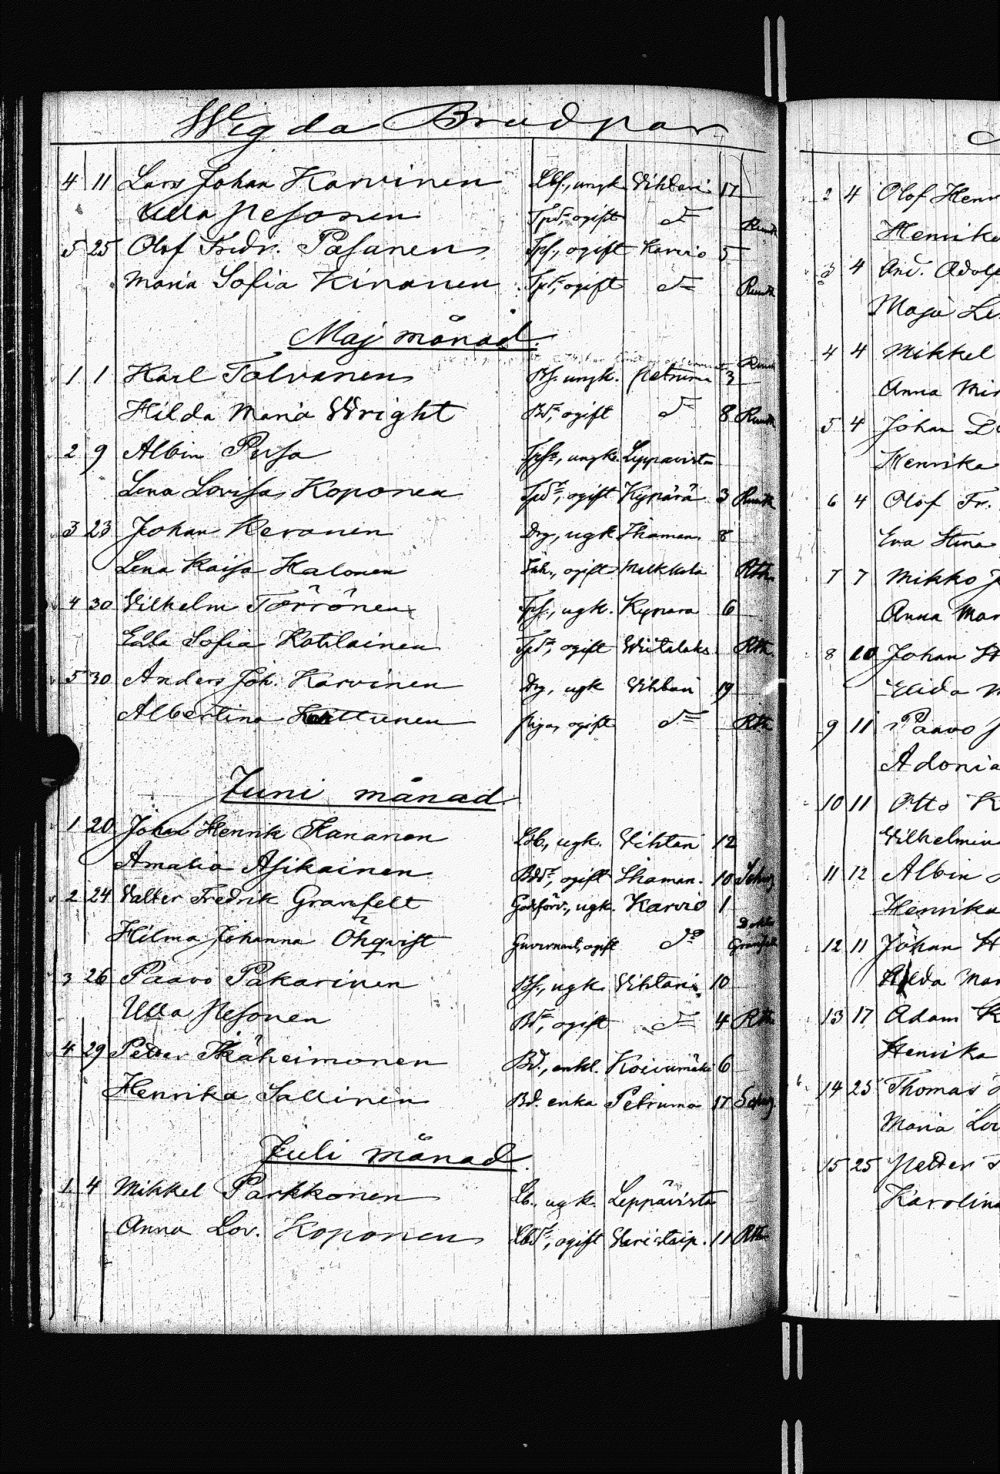 Wigda Brudpar
4 11 Lars Johan Karvinen Lbs., ungk. Vihtari 17
Ulla Nesonen Tpd., ogift d:o Runth
5 25 Olof Fredr. Pasanen ogift Karvio 5
Maria Sofia Kinanen Tpd., ogift d:o Runth
Maj månad.
1 1 Karl Tolvanen Bs. ungk. Petruma 3
Hilda Maria Wright Bd., ogift d:o 8 Runth
2 9 Albin Pusa ungk. Leppävirta
Lena Lovisa Koponen ogift Kypärä 3 Runth
3 23 Johan Kervonen Drg, ugk. Ihaman 8
Lena Kaisa Halonen Inh., ogift Melkkola Rth.
4 30 Vilhelm Törrönen ugk. Kypara 6
Edla Sofia Kotilainen ogift Wiitalaks. Rth.
5 30 Anders Joh. Karvinen Drg, ugk Vihtari 19
Albertina Kuittunen Piga, ogift d:o Rth
Juni månad
1 20 Johan Henrik Hananen Lbs., ugk. Vihtari 12
Amalia Asikainen Bdr., ogift Ihaman. 10
2 24 Valter Fredrik Granfelt Godsförv., ugk. Karvio 1
Hilma Johanna Öhqvist Guvernant, ogift d:o Granfelt
3 26 Paavo Pakarinen Bs., ugk Vihtari 10
Ulla Nesonen Bd., ogift d:o 4 Rth
4 29 Petter Käheimonen Bd., enkl. Koivumäki 6
Henrika Sallinen Bd. enka Petruma 17
Juli månad
1 4 Mikkel Parkkonen Lb., ugk. Leppävirta
Anna Lov. Koponen ogift Varistaip. 11 Rth
2 4 Olof Henr
Henrika
3 4 And. Adolf
Maja Le
4 4 Mikkel
Anna
5 4 Johan
Henrika
6 4 Olof Fr.
Eva Stina
7 7 Mikko
Anna Mar
8 10 Johan H
Elida
9 11 Paavo
Adonia
10 11 Otto K
Vilhelmin
11 12 Albin
Henrika
12 11 Johan H
Hilda Mar
13 17 Adam K
Henrika
14 25 Thomas
Maria Lov
15 25 Petter
Karolina